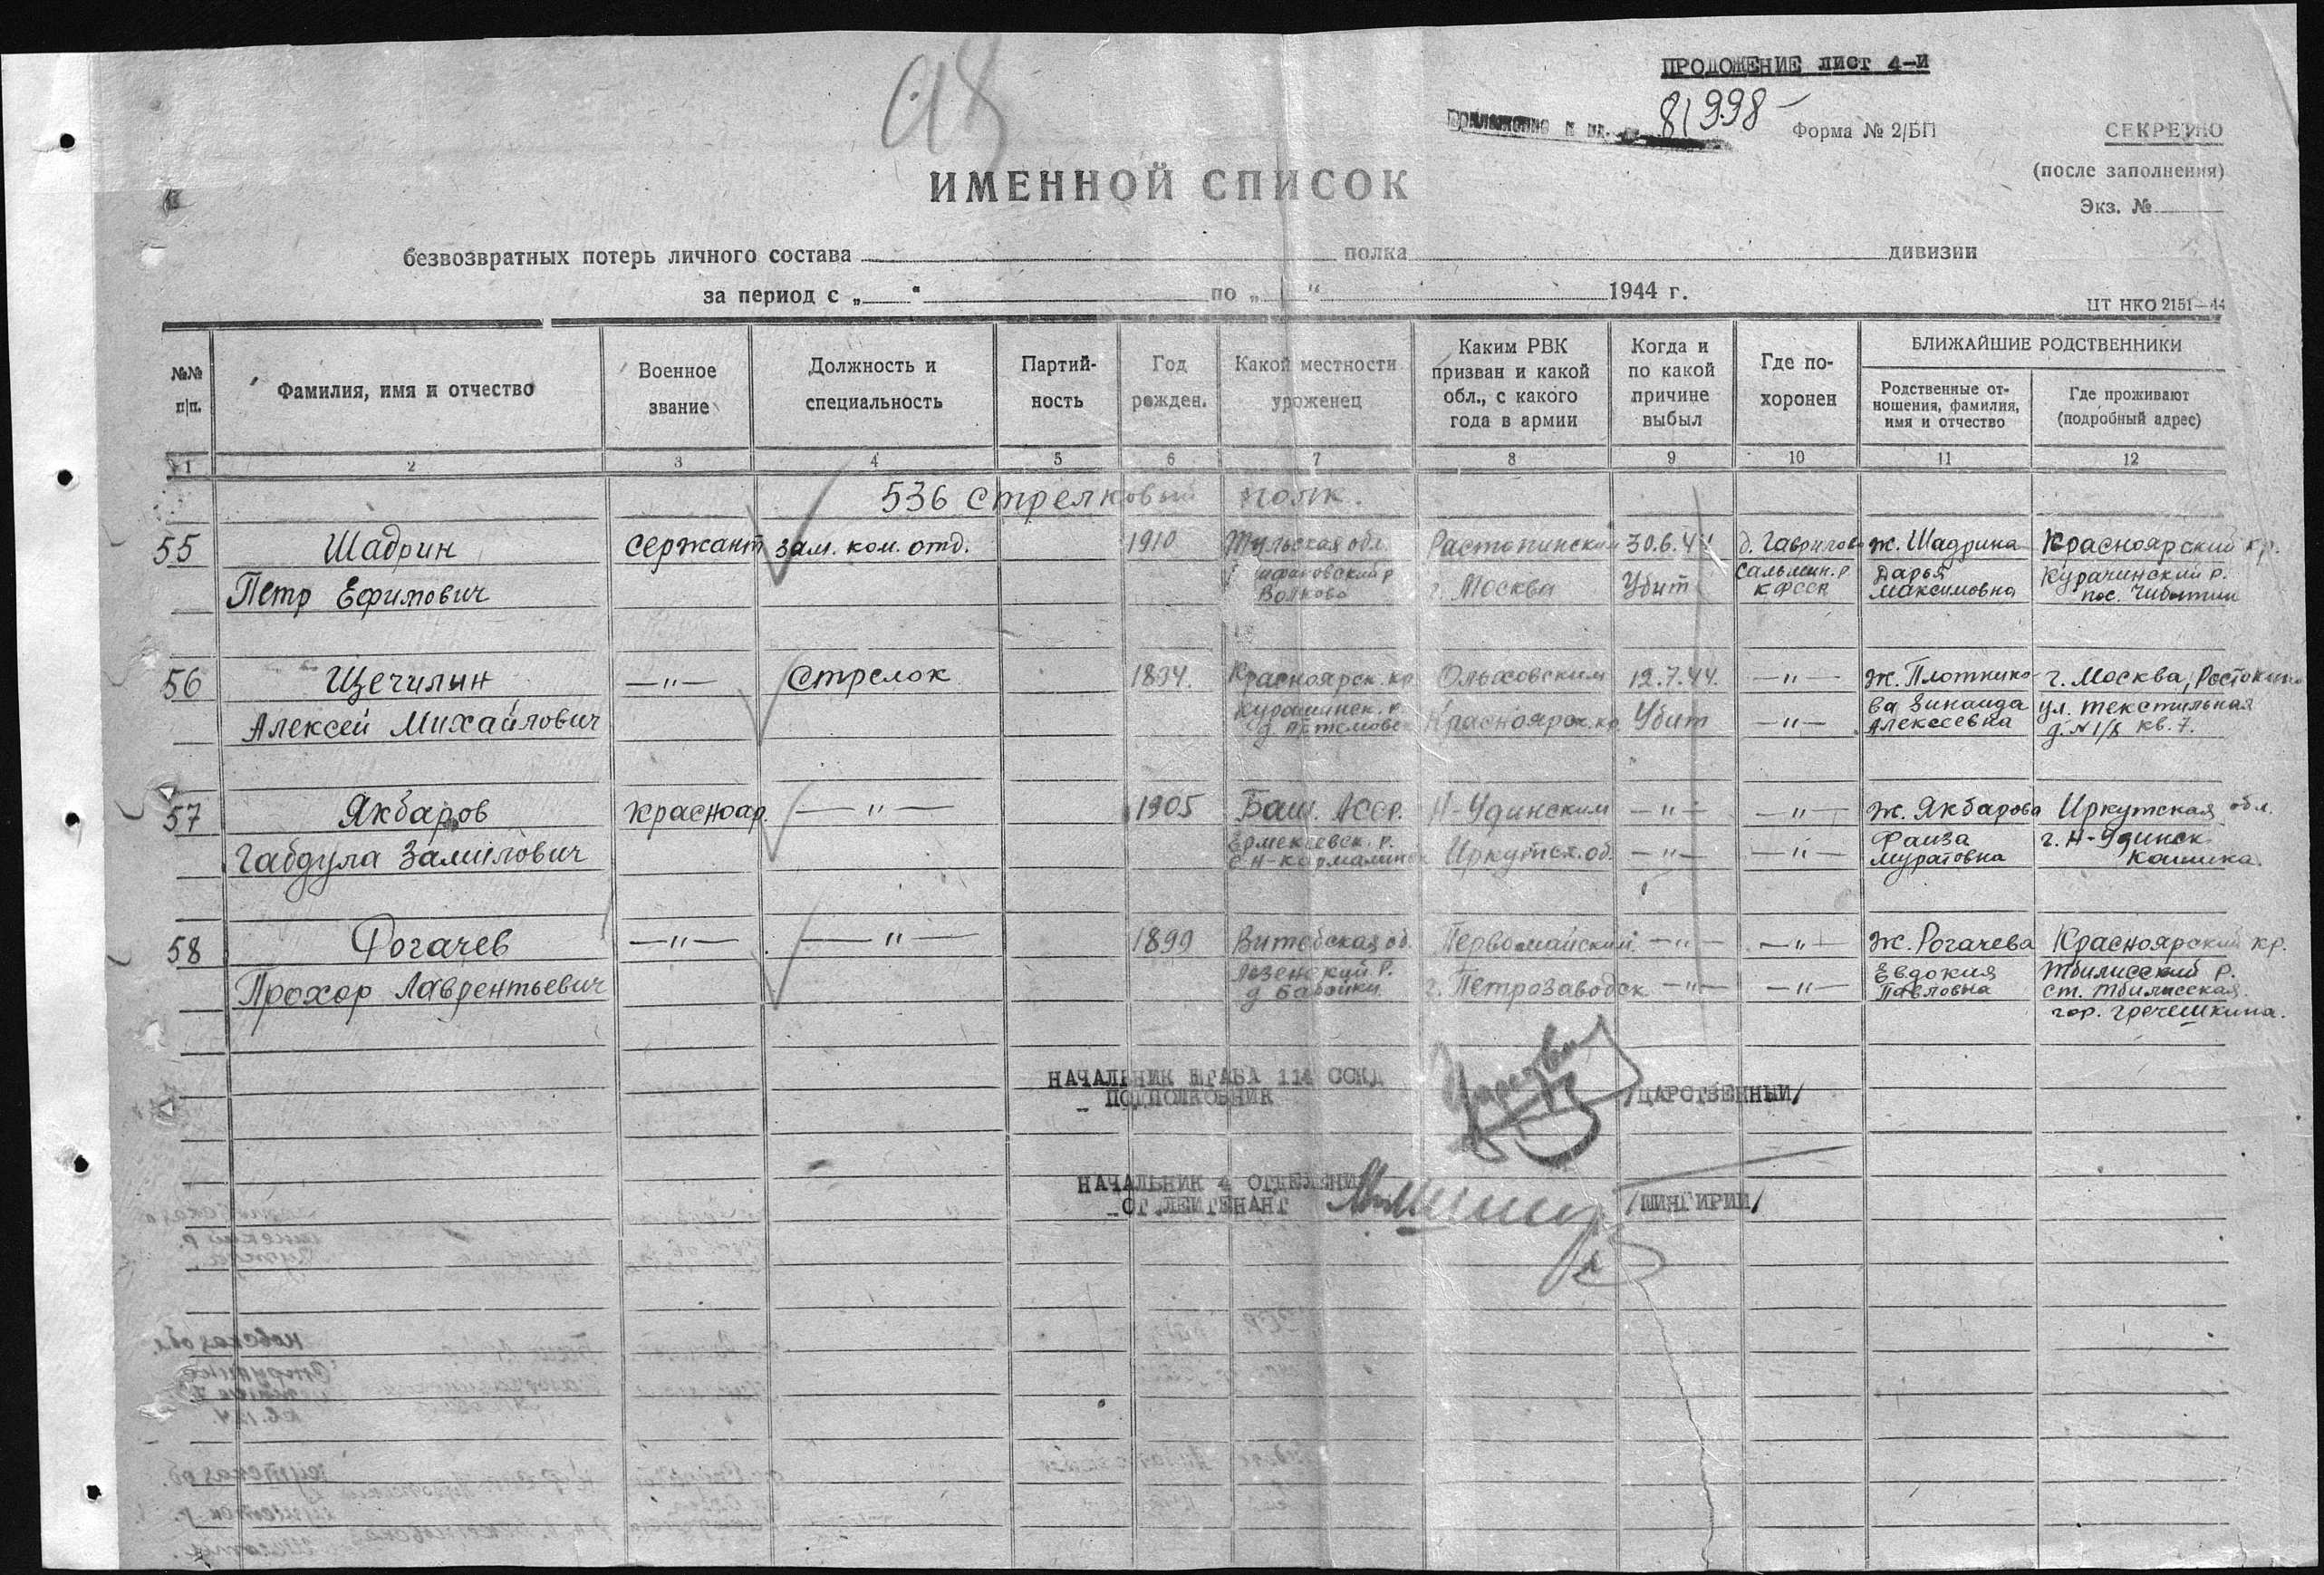 ПРОДОЖЕНИЕ лист 4-й
Приложение к вх. № 81998
Форма № 2/БП
СЕКРЕТНО
(после заполнения)
Экз. №
ИМЕННОЙ СПИСОК
безвозвратных потерь личного состава полка дивизии
за период с „ “ по „ “ 1944 г.
ЦТ НКО 2151—44
№№ п/п.
Фамилия, имя и отчество
Военное звание
Должность и специальность
Партий-
ность
Год рожден.
Какой местности уроженец
Каким РВК
призван и какой
обл., с какого
года в армии
Когда и
по какой
причине
выбыл
Где по-
хоронен
БЛИЖАЙШИЕ РОДСТВЕННИКИ
Родственные от-
ношения, фамилия,
имя и отчество
Где проживают
(подробный адрес)
1 2 3 4 5 6 7 8 9 10 11 12
536 Стрелковый полк.
55 Шадрин сержант зам. ком. отд. 1910 Тульская обл. 30.6.44 ж. Шадрина Красноярский кр.
Петр Ефимович Волково г. Москва Убит Сальмин. р. КФССР Дарья Максимовна Курагинский р. пос.
56 Щечилын —"— Стрелок Красноярск. кр. Ольховским 12.7.44. —"— ж. Плотнико- г. Москва, Ростокино
Алексей Михайлович д. Красноярск. кр. Убит —"— ва Зинаида Алексеевна ул. Текстильная д. № 1/8 кв. 7.
57 Якбаров красноар. —"— 1905 Баш. АССР. Н-Удинским —"— —"— ж. Якбарова Иркутская обл.
Габдула Ермекеевск. р. Иркутск. об. —"— —"— Фаиза Муратовна г. Н-Удинск
58 Рогачев —"— —"— 1899 Витебская об. Первомайский —"— —"— ж. Рогачева Красноярский кр.
Прохор Лаврентьевич г. Петрозаводск —"— —"— Евдокия Павловна Тбилисский р.
ст. Тбилисская
гор. Гречешкина.
НАЧАЛЬНИК ШТАБА 114 ССКД
ПОДПОЛКОВНИК /ЦАРСТВЕННЫЙ/
НАЧАЛЬНИК 4 ОТДЕЛЕНИ
СТ. ЛЕЙТЕНАНТ /ШИНГИРИЙ/